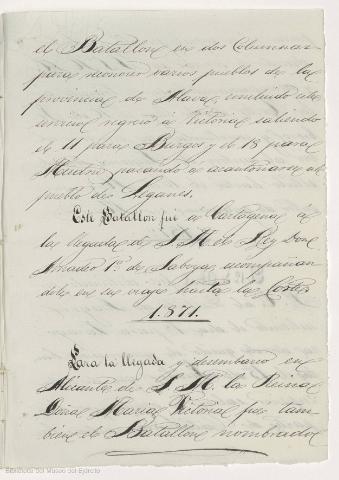 el Batallon en dos Columnas
para reconocer varios pueblos de la
provincia de Alava, concluido este
servicio regresó á Victoria saliendo
el 11 para Burgos y el 18 para
Madrid pasando a acantonarse al
pueblo de Leganes.
Este Batallon fué a Cartagena á
la llegada de S. M. el Rey Don
Amadeo 1º de Saboya acompañan
dole en su viaje hasta la Corte.
1.871.
Para la llegada y desembarco en
Alicante de S. M. la Reina
Doña Maria Victoria fué tam
bien el Batallon nombrado
Biblioteca del Museo del Ejército